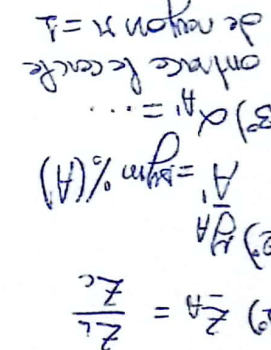 1°) z̄_A = Z_L / Z_C
2°) ȳ_A
A' = sym % (A)
3°) α_A' = ...
on trace le cercle
de rayon r = 1